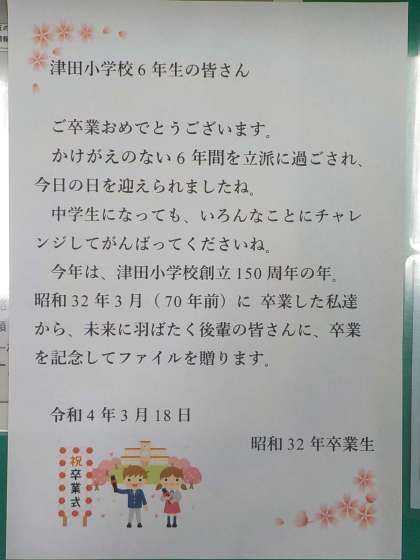 津田小学校6年生の皆さん
ご卒業おめでとうございます。
かけがえのない6年間を立派に過ごされ、
今日の日を迎えられましたね。
中学生になっても、いろんなことにチャレ
ンジしてがんばってくださいね。
今年は、津田小学校創立150周年の年。
昭和32年3月（70年前）に 卒業した私達
から、未来に羽ばたく後輩の皆さんに、卒業
を記念してファイルを贈ります。
令和4年3月18日
昭和32年卒業生
祝卒業式